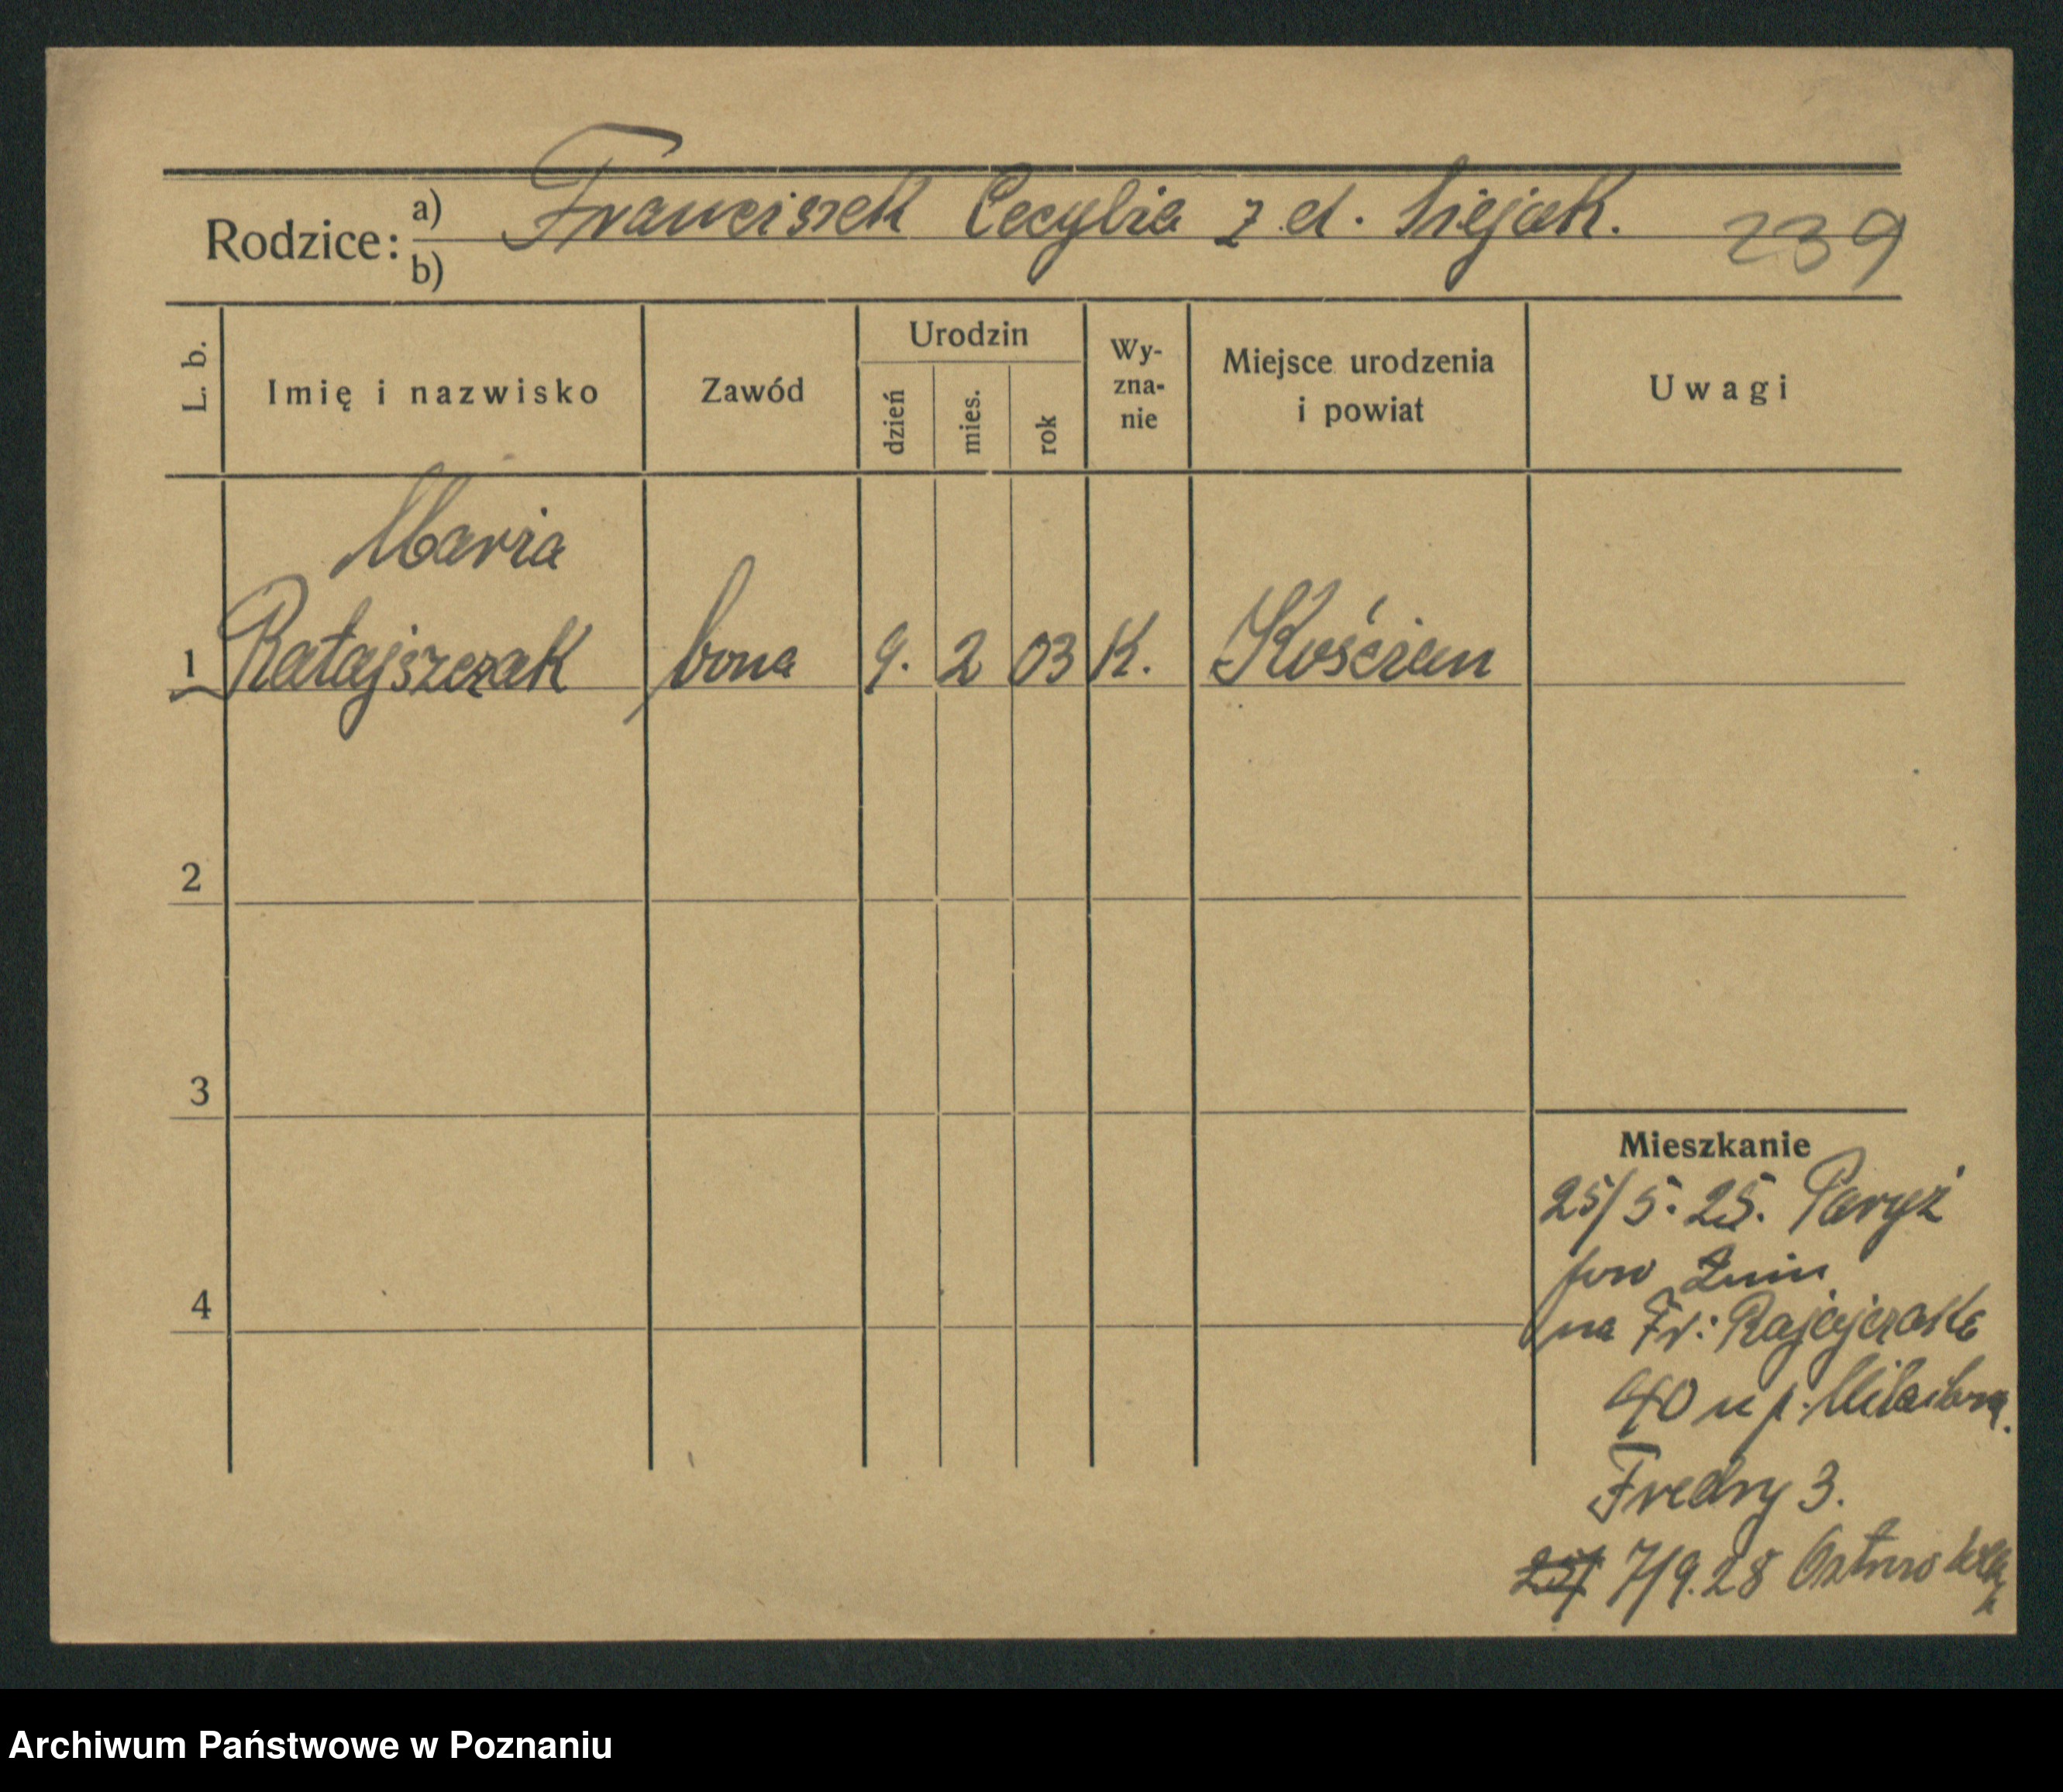 Rodzice: a) Franciszek Cecylia z d. Siejak. 239
b)
L. b. Imię i nazwisko Zawód Urodzin dzień mies. rok Wy-zna-nie Miejsce urodzenia i powiat Uwagi
Maria
1 Ratajszczak bona 9. 2 03 K. Kościan
2
3
4
Mieszkanie
25/5. 25. Paryż
pow Żnin
na Fr: Ratajczaka
40 u p.
Fredry 3.
7/9.28
Archiwum Państwowe w Poznaniu